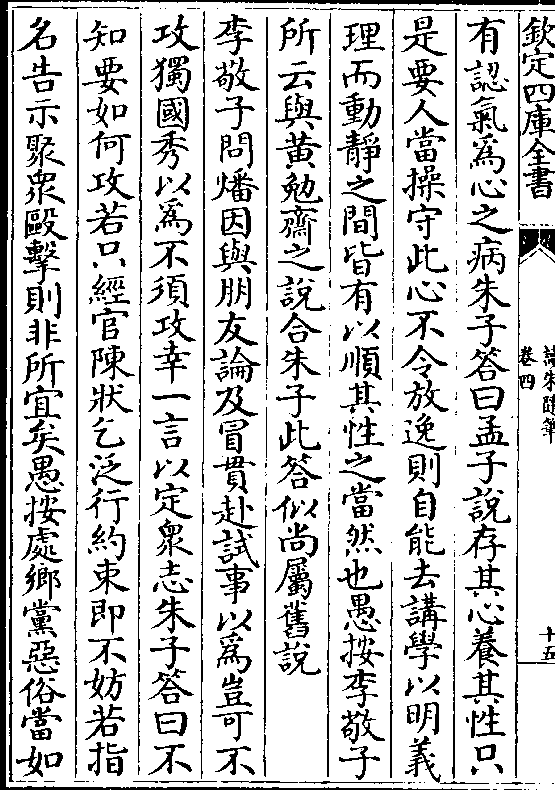 欽定四庫全書
讀朱隨筆
卷四
十五
有認氣為心之病朱子答曰孟子說存其心養其性只
是要人當操守此心不令放逸則自能去講學以明義
理而動靜之間皆有以順其性之當然也愚按李敬子
所云與黃勉齋之說合朱子此答似尚屬舊說
李敬子問燔因與朋友論及冒貫赴試事以為豈可不
攻獨國秀以為不須攻幸一言以定衆志朱子答曰不
知要如何攻若只經官陳狀乞泛行約束即不妨若指
名告示聚衆毆擊則非所宜矣愚按處鄉黨惡俗當如